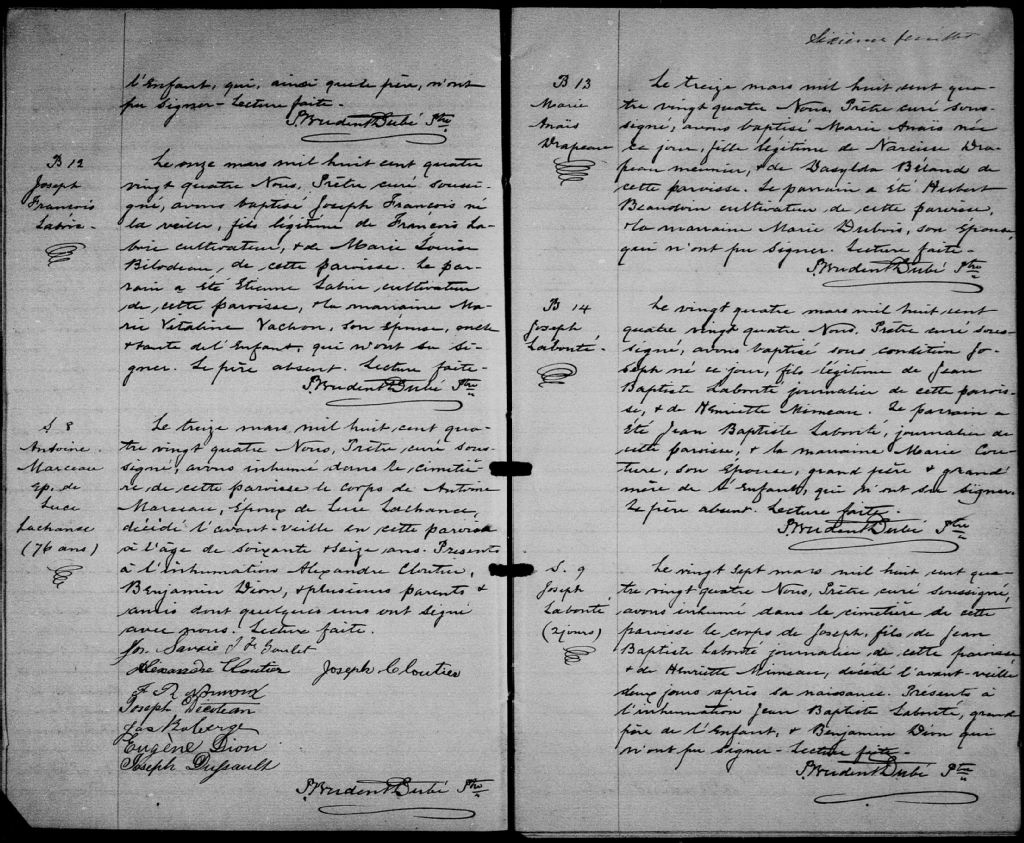 l'Enfant, qui, ainsi que le père, n'ont
pu signer - Lecture faite -
P. Prudent Dubé Ptre
B 12
Joseph
François
Labrie -
Le onze mars mil huit cent quatre
vingt quatre Nous, Prêtre curé soussi-
gné, avons baptisé Joseph François né
la veille, fils légitime de François La-
brie cultivateur, & de Marie Louise
Bilodeau, de cette paroisse. Le par-
rain a été Etienne Labrie cultivateur
de cette paroisse, & la marraine Ma-
rie Vitaline Vachon, son épouse, oncle
& tante de l'Enfant, qui n'ont su si-
gner. Le père absent. Lecture faite -
P. Prudent Dubé Ptre
S 8
Antoine
Marceau
Ep. de
Luce
Lachance
(76 ans)
Le treize mars mil huit cent qua-
tre vingt quatre Nous, Prêtre curé sous-
signé, avons inhumé dans le cimetiè-
re de cette paroisse le corps de Antoine
Marceau, Époux de Luce Lachance,
décédé l'avant-veille en cette paroisse
à l'âge de soixante & seize ans. Présents
à l'inhumation Alexandre Cloutier,
Benjamin Dion, & plusieurs parents &
amis dont quelques uns ont signé
avec nous. Lecture faite.
Jos. Savoie J Goulet
Alexandre Cloutier Joseph Cloutier
F R
Joseph
Jos Roberge
Eugène Dion
Joseph Dussault
P. Prudent Dubé Ptre
Sixième feuillet
B 13
Marie
Anaïs
Drapeau
Le treize mars mil huit cent qua-
tre vingt quatre Nous, Prêtre curé sous-
signé, avons baptisé Marie Anaïs née
ce jour, fille légitime de Narcisse Dra-
peau meunier, & de Dasylda Béland de
cette paroisse. Le parrain a été Hubert
Beaudoin cultivateur de cette paroisse,
& la marraine Marie Dubois, son Épouse,
qui n'ont pu signer. Lecture faite -
P. Prudent Dubé Ptre
B 14
Joseph
Labonté -
Le vingt quatre mars mil huit cent
quatre vingt quatre Nous, Prêtre curé sous-
signé, avons baptisé sous condition Jo-
seph né ce jour, fils légitime de Jean
Baptiste Labonté journalier de cette parois-
se, & de Henriette Mimeau. Le parrain a
été Jean Baptiste Labonté, journalier de
cette paroisse, & la marraine Marie Cou-
ture, son Epouse, grand père & grand
mère de l'Enfant, qui n'ont su signer.
Le père absent. Lecture faite.
P. Prudent Dubé Ptre
S. 9
Joseph
Labonté
(2 jours)
Le vingt sept mars mil huit cent qua-
tre vingt quatre Nous, Prêtre curé soussigné,
avons inhumé dans le cimetière de cette
paroisse le corps de Joseph, fils de Jean
Baptiste Labonté journalier de cette paroisse
& de Henriette Mimeau, décédé l'avant-veille
deux jours après sa naissance. Présents à
l'inhumation Jean Baptiste Labonté, grand
père de l'Enfant, & Benjamin Dion qui
n'ont pu signer - Lecture faite -
P. Prudent Dubé Ptre